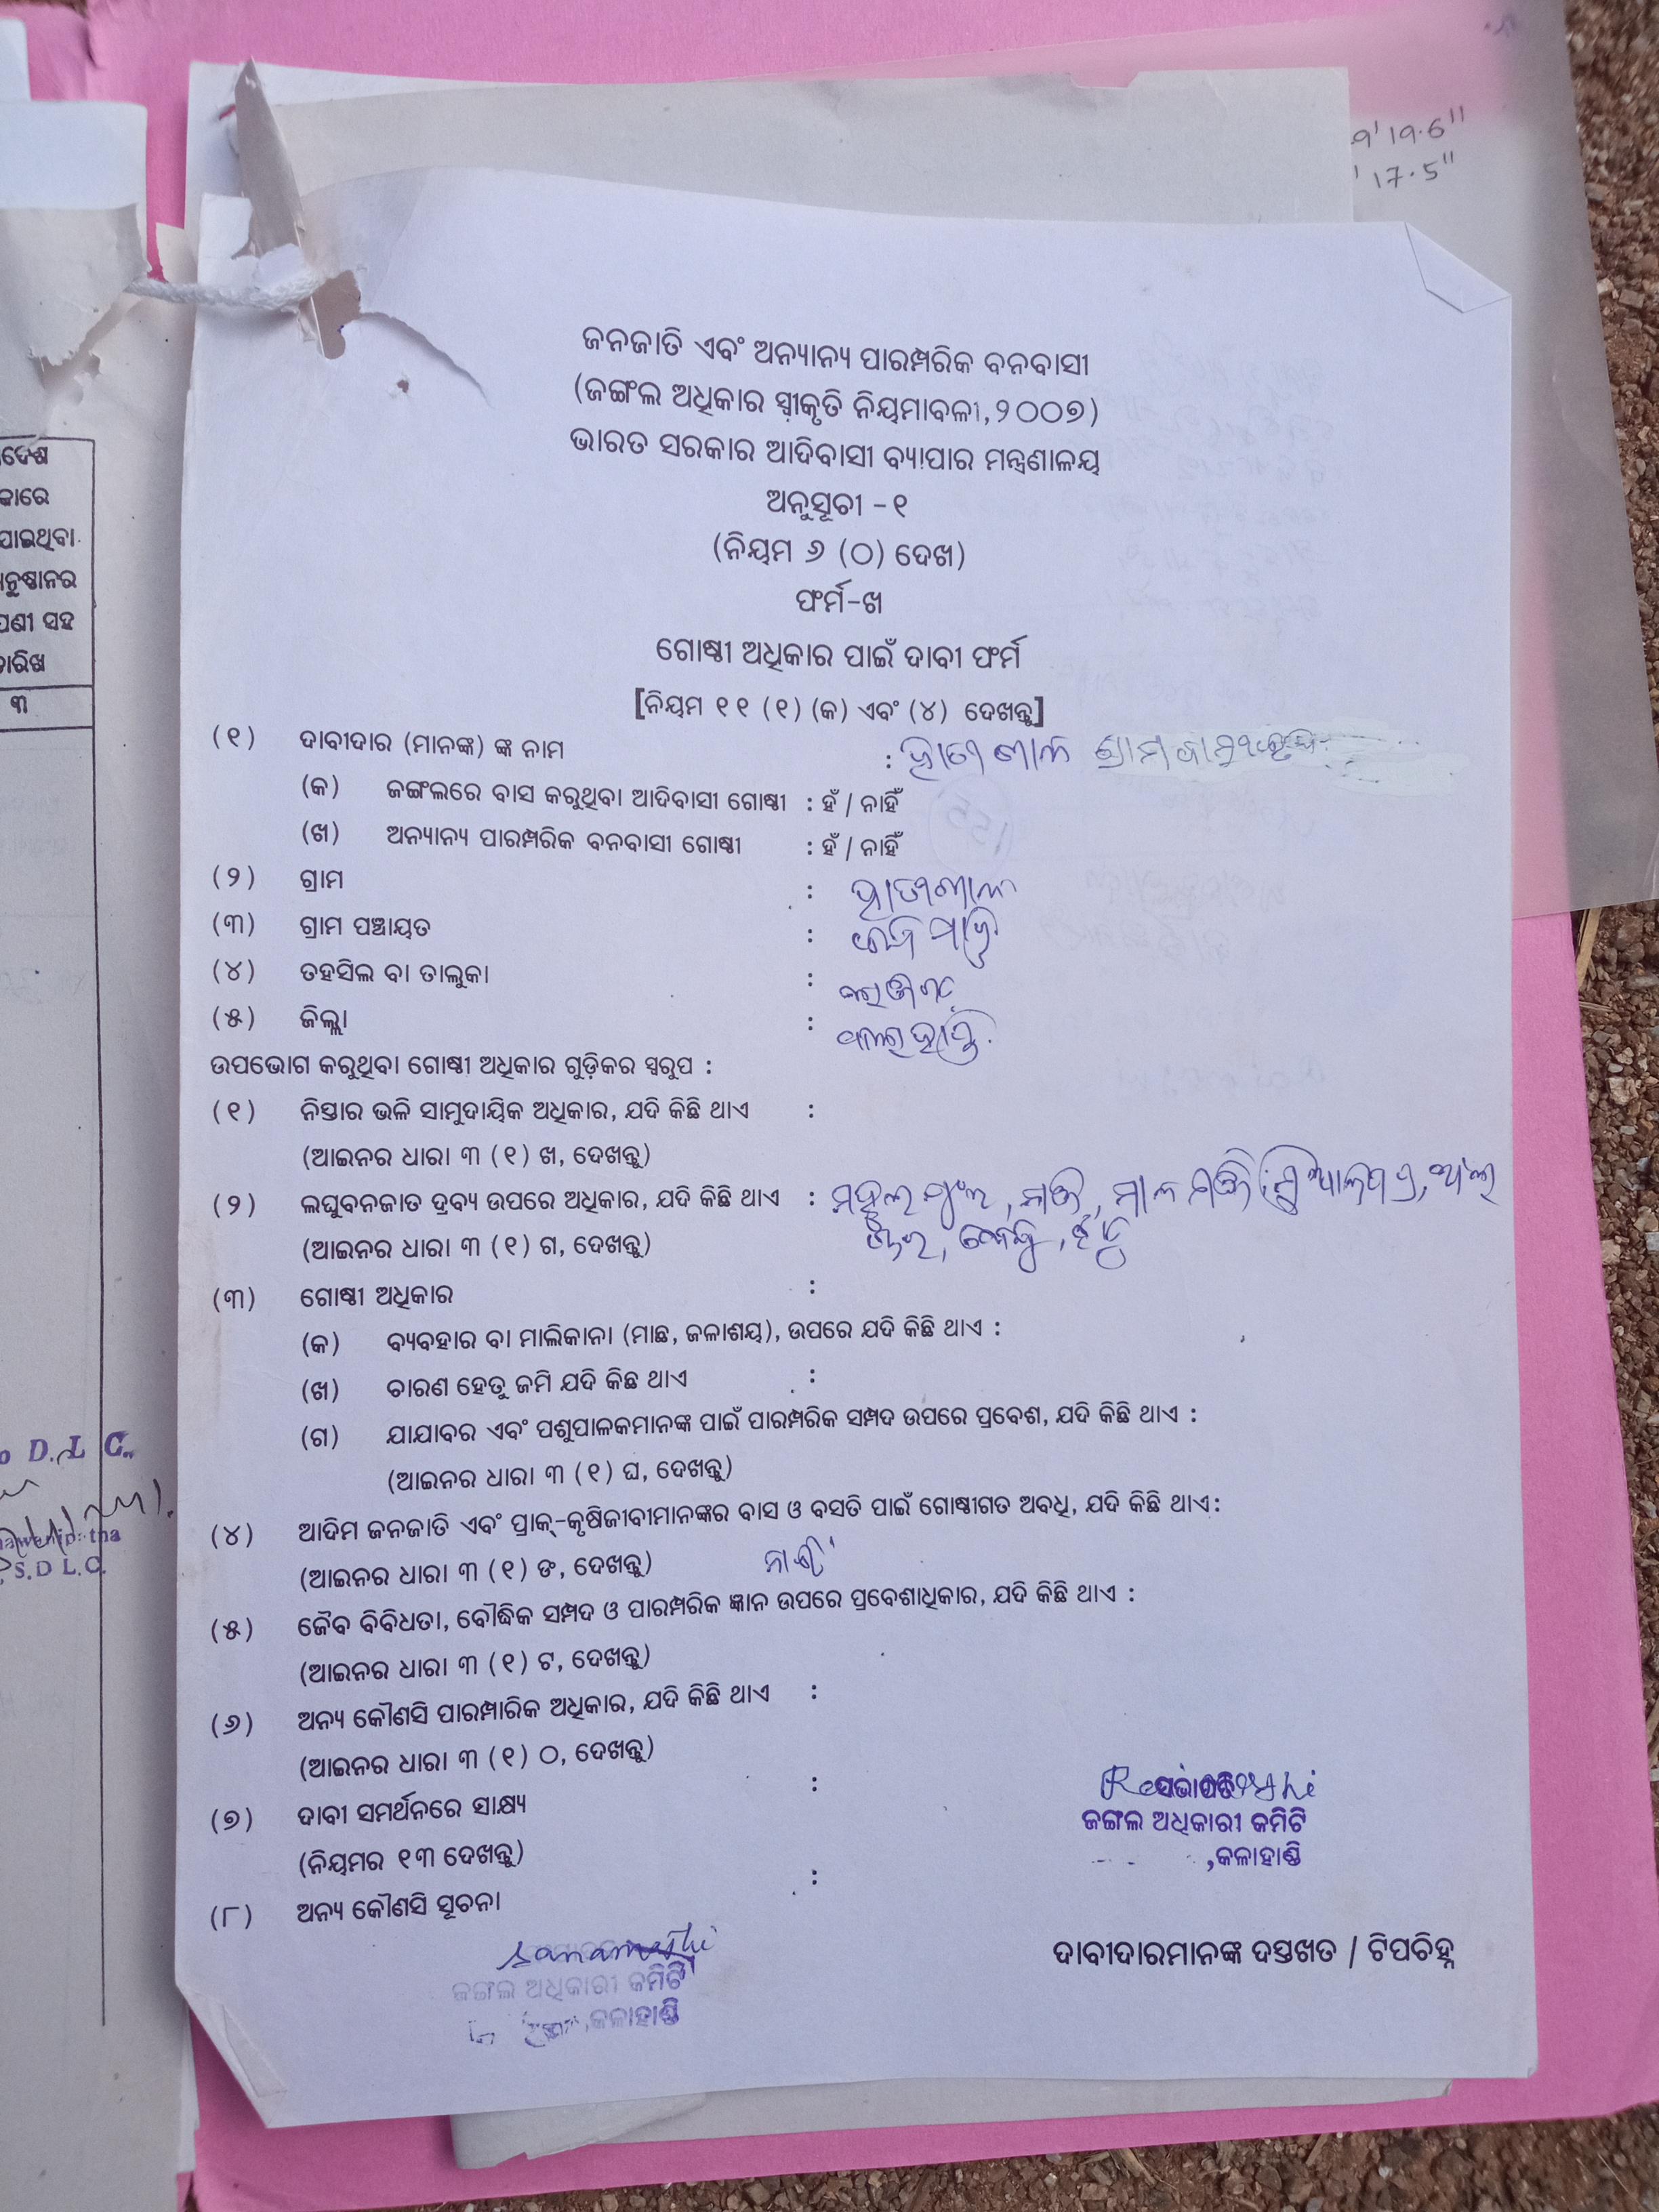 ଜନଜାତି ଏବଂ ଅନ୍ୟାନ୍ୟ ପାରମ୍ପରିକ ବନବାସୀ
(ଜଙ୍ଗଲ ଅଧିକାର ସ୍ୱୀକୃତି ନିୟମାବଳୀ,୨୦୦୭)
ଭାରତ ସରକାର ଆଦିବାସୀ ବ୍ୟାପାର ମନ୍ତ୍ରଣାଳୟ
ଅନୁସୂଚୀ -୧
(ନିୟମ ୬ (ଠ) ଦେଖ)
ଫର୍ମ-ଖ
ଗୋଷ୍ଠୀ ଅଧିକାର ପାଇଁ ଦାବୀ ଫର୍ମ
[ନିୟମ ୧୧ (୧) (କ) ଏବଂ (୪) ଦେଖନ୍ତୁ]
(୧) ଦାବୀଦାର (ମାନଙ୍କ) ଙ୍କ ନାମ :
(କ) ଜଙ୍ଗଲରେ ବାସ କରୁଥିବା ଆଦିବାସୀ ଗୋଷ୍ଠୀ : ହଁ / ନାହିଁ
(ଖ) ଅନ୍ୟାନ୍ୟ ପାରମ୍ପରିକ ବନବାସୀ ଗୋଷ୍ଠୀ : ହଁ / ନାହିଁ
(୨) ଗ୍ରାମ :
(୩) ଗ୍ରାମ ପଞ୍ଚାୟତ :
(୪) ତହସିଲ ବା ତାଲୁକା :
(୫) ଜିଲ୍ଲା : କଳାହାଣ୍ଡି
ଉପଭୋଗ କରୁଥିବା ଗୋଷ୍ଠୀ ଅଧିକାର ଗୁଡ଼ିକର ସ୍ୱରୁପ :
(୧) ନିସ୍ତାର ଭଳି ସାମୁଦାୟିକ ଅଧିକାର, ଯଦି କିଛି ଥାଏ :
(ଆଇନର ଧାରା ୩ (୧) ଖ, ଦେଖନ୍ତୁ)
(୨) ଲଘୁବନଜାତ ଦ୍ରବ୍ୟ ଉପରେ ଅଧିକାର, ଯଦି କିଛି ଥାଏ : ମହୁଲ
(ଆଇନର ଧାରା ୩ (୧) ଗ, ଦେଖନ୍ତୁ)
(୩) ଗୋଷ୍ଠୀ ଅଧିକାର :
(କ) ବ୍ୟବହାର ବା ମାଲିକାନା (ମାଛ, ଜଳାଶୟ), ଉପରେ ଯଦି କିଛି ଥାଏ :
(ଖ) ଚାରଣ ହେତୁ ଜମି ଯଦି କିଛ ଥାଏ :
(ଗ) ଯାଯାବର ଏବଂ ପଶୁପାଳକମାନଙ୍କ ପାଇଁ ପାରମ୍ପରିକ ସମ୍ପଦ ଉପରେ ପ୍ରବେଶ, ଯଦି କିଛି ଥାଏ :
(ଆଇନର ଧାରା ୩ (୧) ଘ, ଦେଖନ୍ତୁ)
(୪) ଆଦିମ ଜନଜାତି ଏବଂ ପ୍ରାକ୍-କୃଷିଜୀବୀମାନଙ୍କର ବାସ ଓ ବସତି ପାଇଁ ଗୋଷ୍ଠୀଗତ ଅବଧି, ଯଦି କିଛି ଥାଏ:
(ଆଇନର ଧାରା ୩ (୧) ଙ, ଦେଖନ୍ତୁ)
(୫) ଜୈବ ବିବିଧତା, ବୌଦ୍ଧିକ ସମ୍ପଦ ଓ ପାରମ୍ପରିକ ଜ୍ଞାନ ଉପରେ ପ୍ରବେଶାଧିକାର, ଯଦି କିଛି ଥାଏ :
(ଆଇନର ଧାରା ୩ (୧) ଟ, ଦେଖନ୍ତୁ)
(୬) ଅନ୍ୟ କୌଣସି ପାରମ୍ପାରିକ ଅଧିକାର, ଯଦି କିଛି ଥାଏ :
(ଆଇନର ଧାରା ୩ (୧) ଠ, ଦେଖନ୍ତୁ)
(୭) ଦାବୀ ସମର୍ଥନରେ ସାକ୍ଷ୍ୟ :
(ନିୟମର ୧୩ ଦେଖନ୍ତୁ)
(୮) ଅନ୍ୟ କୌଣସି ସୂଚନା :
ସଭାପତି
ଜଙ୍ଗଲ ଅଧିକାରୀ କମିଟି
,କଳାହାଣ୍ଡି
ଦାବୀଦାରମାନଙ୍କ ଦସ୍ତଖତ / ଟିପଚିହ୍ନ
ଜଙ୍ଗଲ ଅଧିକାରୀ କମିଟି
,କଳାହାଣ୍ଡି
19.6"
17.5"
ଯାଇଥିବା
ସହ
୩
D. L. C.
S.D L.C.